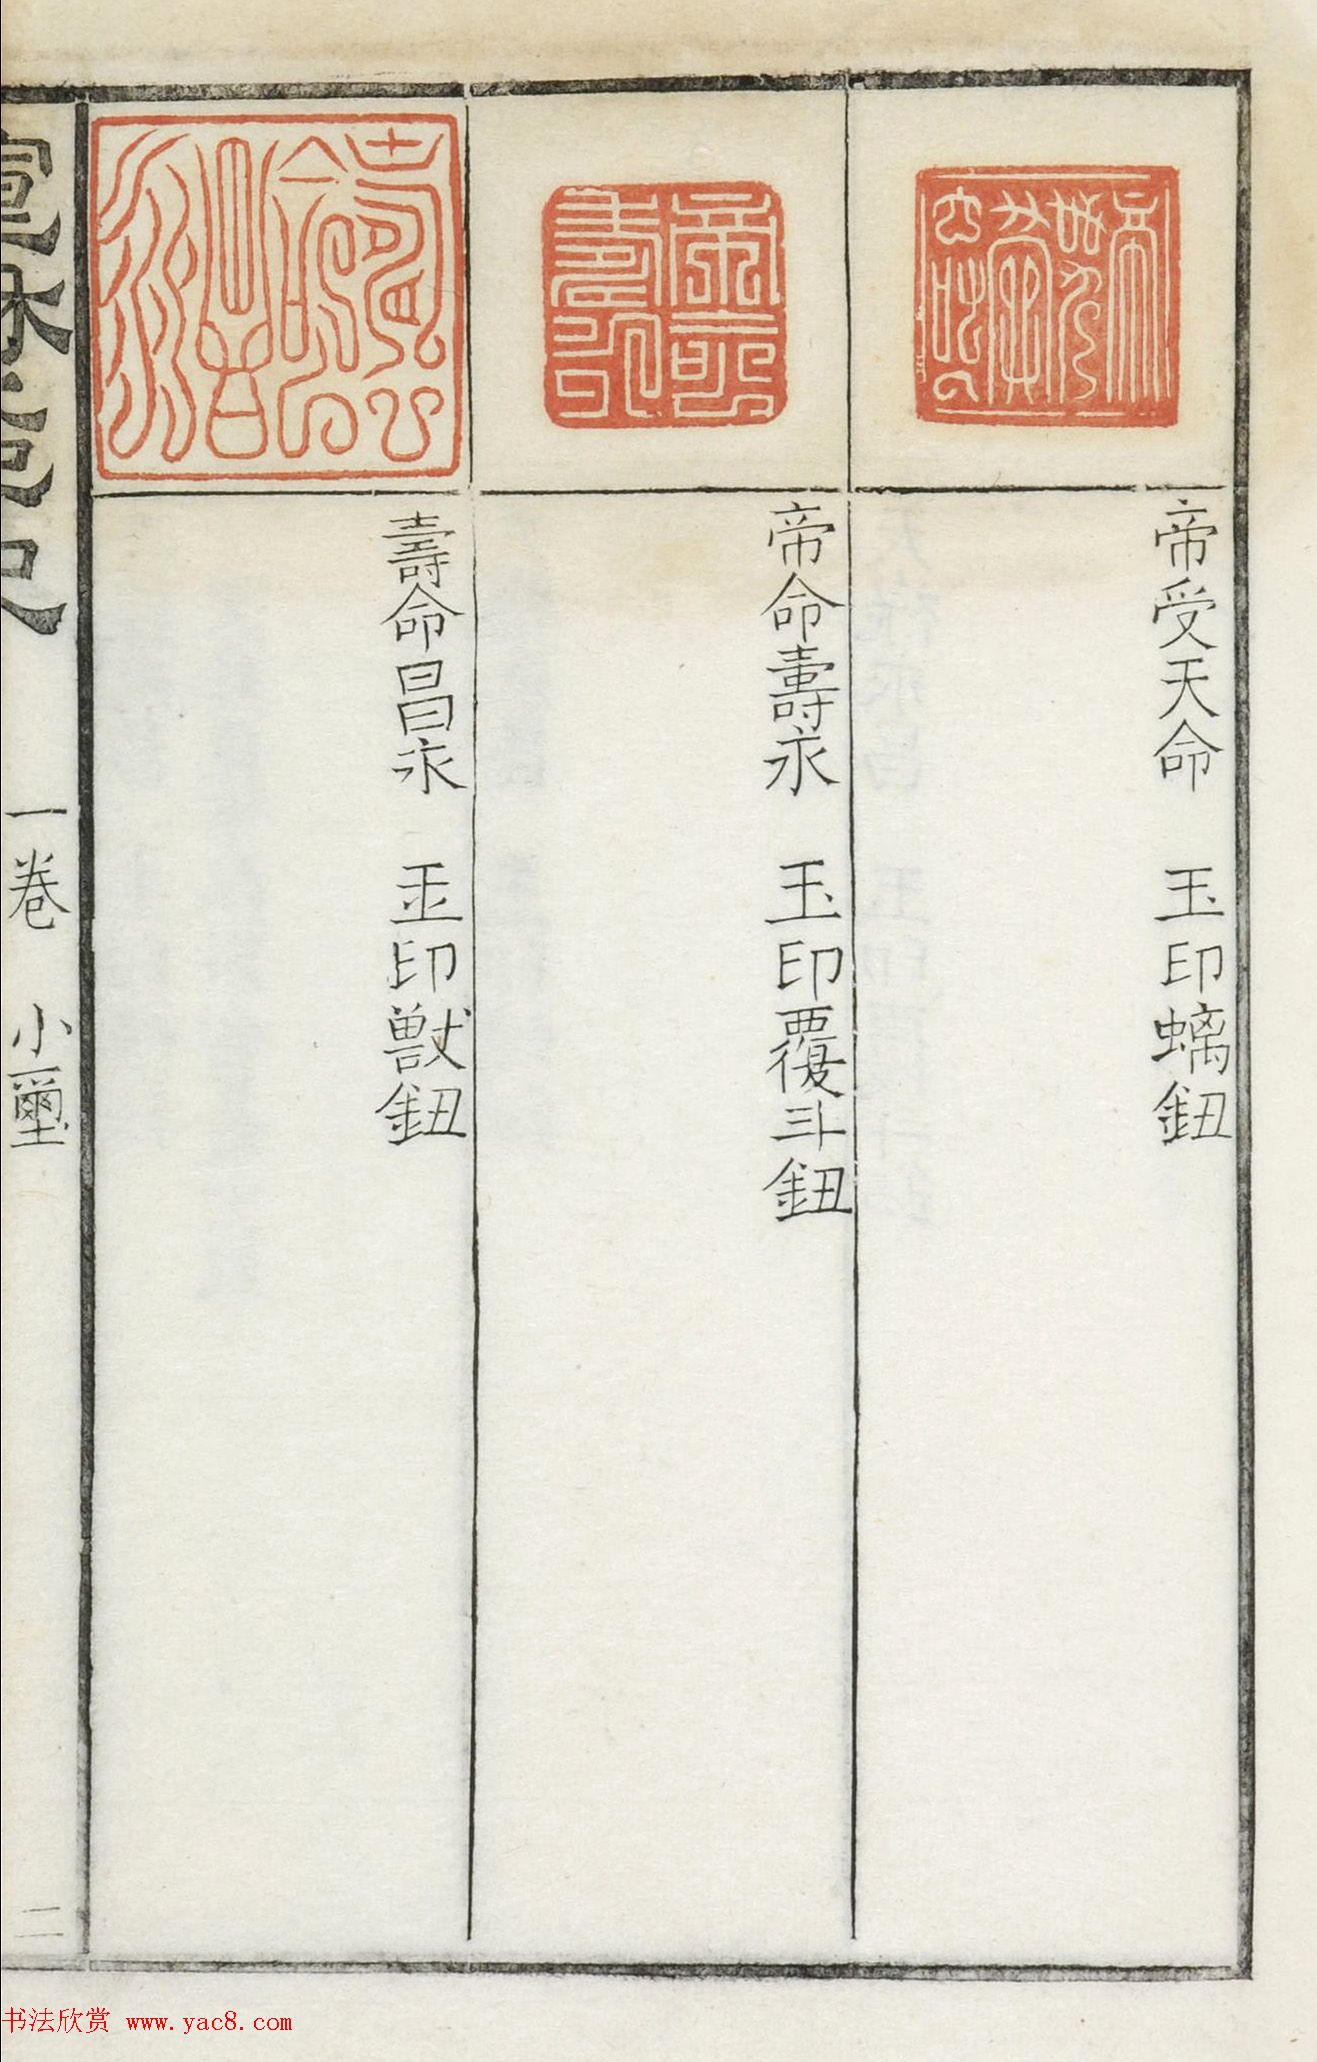 帝受天命　玉印螭鈕
帝命壽永　玉印覆斗鈕
壽命昌永　玉印獸鈕
一卷　小璽
二
书法欣赏 www.yac8.com